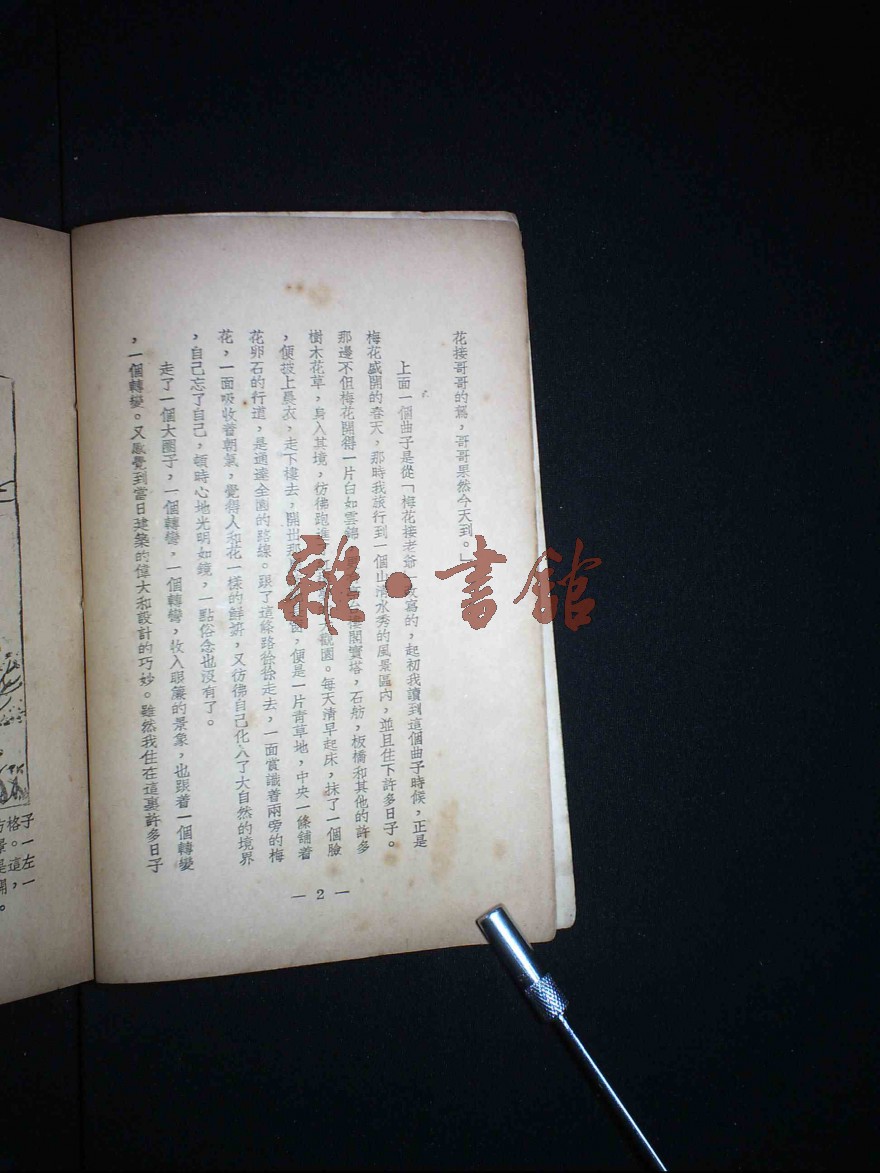 花接哥哥的駕，哥哥果然今天到。」
上面一個曲子是從「梅花接老爺」改寫的，起初我讀到這個曲子時候，正是
梅花盛開的春天，那時我旅行到一個山清水秀的風景區內，並且住下許多日子。
那邊不但梅花開得一片白如雲錦，樓閣寶塔，石舫，板橋和其他的許多
樹木花草，身入其境，彷彿跑進觀園。每天清早起床，抹了一個臉
，便披上晨衣，走下樓去，開出那窗，便是一片青草地，中央一條舖着
花卵石的行道，是通達全園的路線。跟了這條路徐徐走去，一面賞識着兩旁的梅
花，一面吸收着朝氣，覺得人和花一樣的鮮妍，又彷彿自己化入了大自然的境界
，自己忘了自己，頓時心地光明如鏡，一點俗念也沒有了。
走了一個大圈子，一個轉彎，一個轉彎，收入眼簾的景象，也跟着一個轉變
，一個轉變。又感覺到當日建築的偉大和設計的巧妙。雖然我住在這裏許多日子
— 2 —
子一左一
格。這，
雜·書館